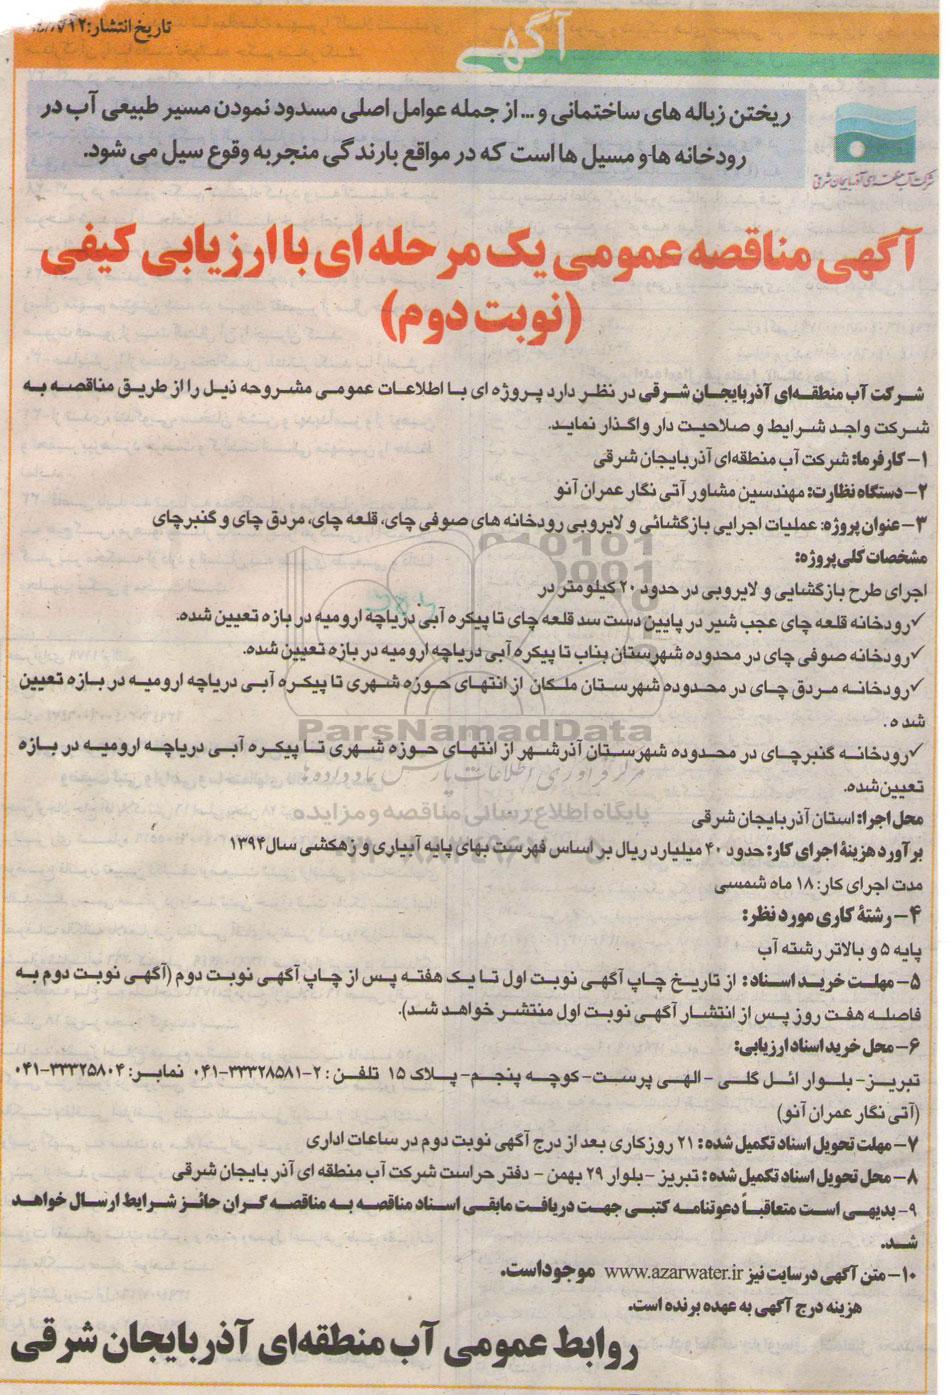 تاریخ انتشار:
آگهی
ریختن زباله های ساختمانی و... از جمله عوامل اصلی مسدود نمودن مسیر طبیعی آب در
رودخانه ها و مسیل ها است که در مواقع بارندگی منجر به وقوع سیل می شود.
شرکت آب منطقه‌ای آذربایجان شرقی
آگهی مناقصه عمومی یک مرحله ای با ارزیابی کیفی
(نوبت دوم)
شرکت آب منطقه‌ای آذربایجان شرقی در نظر دارد پروژه ای با اطلاعات عمومی مشروحه ذیل را از طریق مناقصه به
شرکت واجد شرایط و صلاحیت دار واگذار نماید.
۱- کارفرما: شرکت آب منطقه‌ای آذربایجان شرقی
۲- دستگاه نظارت: مهندسین مشاور آتی نگار عمران آنو
۳- عنوان پروژه: عملیات اجرایی بازگشائی و لایروبی رودخانه های صوفی چای، قلعه چای، مردق چای و گنبرچای
مشخصات کلی پروژه:
اجرای طرح بازگشایی و لایروبی در حدود ۲۰ کیلومتر در
✓رودخانه قلعه چای عجب شیر در پایین دست سد قلعه چای تا پیکره آبی دریاچه ارومیه در بازه تعیین شده.
✓رودخانه صوفی چای در محدوده شهرستان بناب تا پیکره آبی دریاچه ارومیه در بازه تعیین شده.
✓رودخانه مردق چای در محدوده شهرستان ملکان از انتهای حوزه شهری تا پیکره آبی دریاچه ارومیه در بازه تعیین
شده.
✓رودخانه گنبرچای در محدوده شهرستان آذرشهر از انتهای حوزه شهری تا پیکره آبی دریاچه ارومیه در بازه
تعیین شده.
محل اجرا: استان آذربایجان شرقی
برآورد هزینهٔ اجرای کار: حدود ۴۰ میلیارد ریال بر اساس فهرست بهای پایه آبیاری و زهکشی سال ۱۳۹۴
مدت اجرای کار: ۱۸ ماه شمسی
۴- رشتهٔ کاری مورد نظر:
پایه ۵ و بالاتر رشته آب
۵- مهلت خرید اسناد: از تاریخ چاپ آگهی نوبت اول تا یک هفته پس از چاپ آگهی نوبت دوم (آگهی نوبت دوم به
فاصله هفت روز پس از انتشار آگهی نوبت اول منتشر خواهد شد).
۶- محل خرید اسناد ارزیابی:
تبریز- بلوار ائل گلی - الهی پرست- کوچه پنجم- پلاک ۱۵ تلفن: ۲-۳۳۳۲۸۵۸۱-۰۴۱ نمابر: ۳۳۳۲۵۸۰۴-۰۴۱
(آتی نگار عمران آنو)
۷- مهلت تحویل اسناد تکمیل شده: ۲۱ روزکاری بعد از درج آگهی نوبت دوم در ساعات اداری
۸- محل تحویل اسناد تکمیل شده: تبریز - بلوار ۲۹ بهمن - دفتر حراست شرکت آب منطقه ای آذربایجان شرقی
۹- بدیهی است متعاقباً دعوتنامه کتبی جهت دریافت مابقی اسناد مناقصه به مناقصه گران حائز شرایط ارسال خواهد
شد.
۱۰- متن آگهی در سایت نیز www.azarwater.ir موجود است.
هزینه درج آگهی به عهده برنده است.
روابط عمومی آب منطقه‌ای آذربایجان شرقی
ParsNamadData
مرکز فرآوری اطلاعات پارس نماد داده ها
پایگاه اطلاع رسانی مناقصه و مزایده